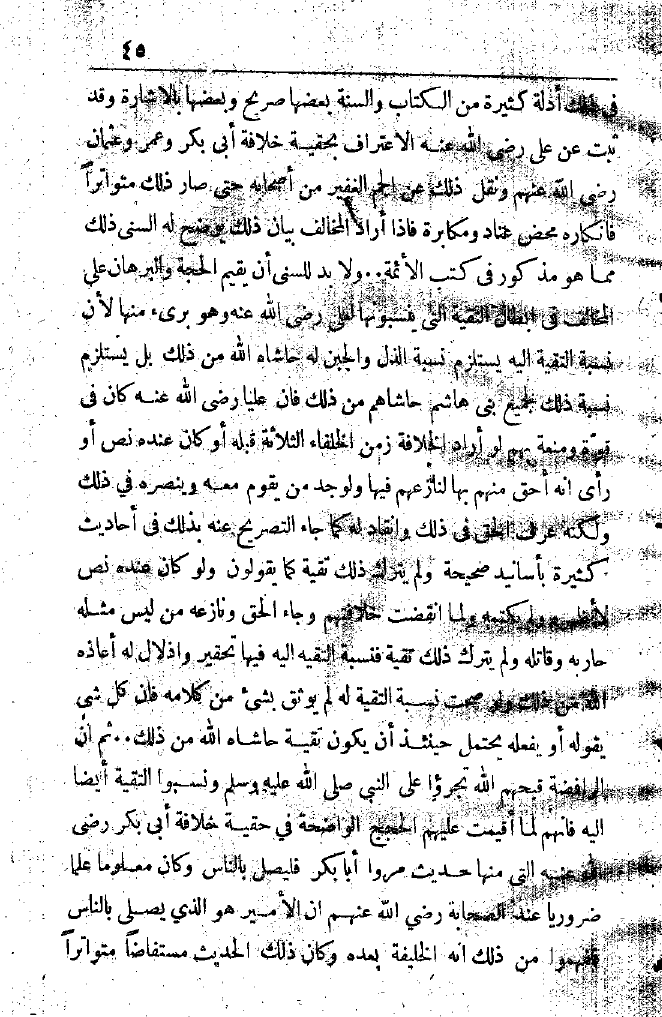 ٤٥
في ذلك أدلة كثيرة من الكتاب والسنة بعضها صريح وبعضها بالاشارة وقد
ثبت عن على رضى الله عنه الاعتراف بحقية خلافة أبى بكر وعمر وعثمان
رضى الله عنهم ونقل ذلك عن الجم الغفير من أصحابه حتى صار ذلك متواتراً
فانكاره محض عناد ومكابرة فاذا أراد المخالف بيان ذلك يوضح له السنى ذلك
مما هو مذكور فى كتب الأئمة..ولا بد للسنى أن يقيم الحجة والبرهان على
المخالف فى ابطال التقية التى ينسبونها لعلى رضى الله عنه وهو برىء منها لأن
نسبة التقية اليه يستلزم نسبة الذل والجبن له حاشاه الله من ذلك بل يستلزم
نسبة ذلك لجميع بنى هاشم حاشاهم من ذلك فان عليا رضى الله عنه كان فى
قوة ومنعة بهم لو أراد الخلافة زمن الخلفاء الثلاثة قبله أو كان عنده نص أو
رأى انه أحق منهم بها لنازعهم فيها ولوجد من يقوم معه وينصره في ذلك
ولكنه عرف الحق فى ذلك وانقاد له كما جاء التصريح عنه بذلك فى أحاديث
كثيرة بأسانيد صحيحة ولم يترك ذلك تقية كما يقولون ولو كان عنده نص
لأظهره ولم يكتمه ولما انقضت خلافتهم وجاء الحق ونازعه من ليس مثله
حاربه وقاتله ولم يترك ذلك تقية فنسبة التقيه اليه فيها تحقير واذلال له أعاذه
الله من ذلك ولو صحت نسبة التقية له لم يوثق بشئ من كلامه فان كل شى
يقوله أو يفعله يحتمل حينئذ أن يكون تقية حاشاه الله من ذلك..ثم ان
الرافضة قبحهم الله تجرؤا على النبي صلى الله عليه وسلم ونسبوا التقية أيضا
اليه فانهم لما أقيمت عليهم الحجج الواضحة في حقية خلافة أبى بكر رضى
الله عنه التى منها حديث مروا أبا بكر فليصل بالناس وكان معلوما علما
ضروريا عند الصحابة رضي الله عنهم ان الأمير هو الذي يصلى بالناس
ففهموا من ذلك انه الخليفة بعده وكان ذلك الحديث مستفاضاً متواتراً